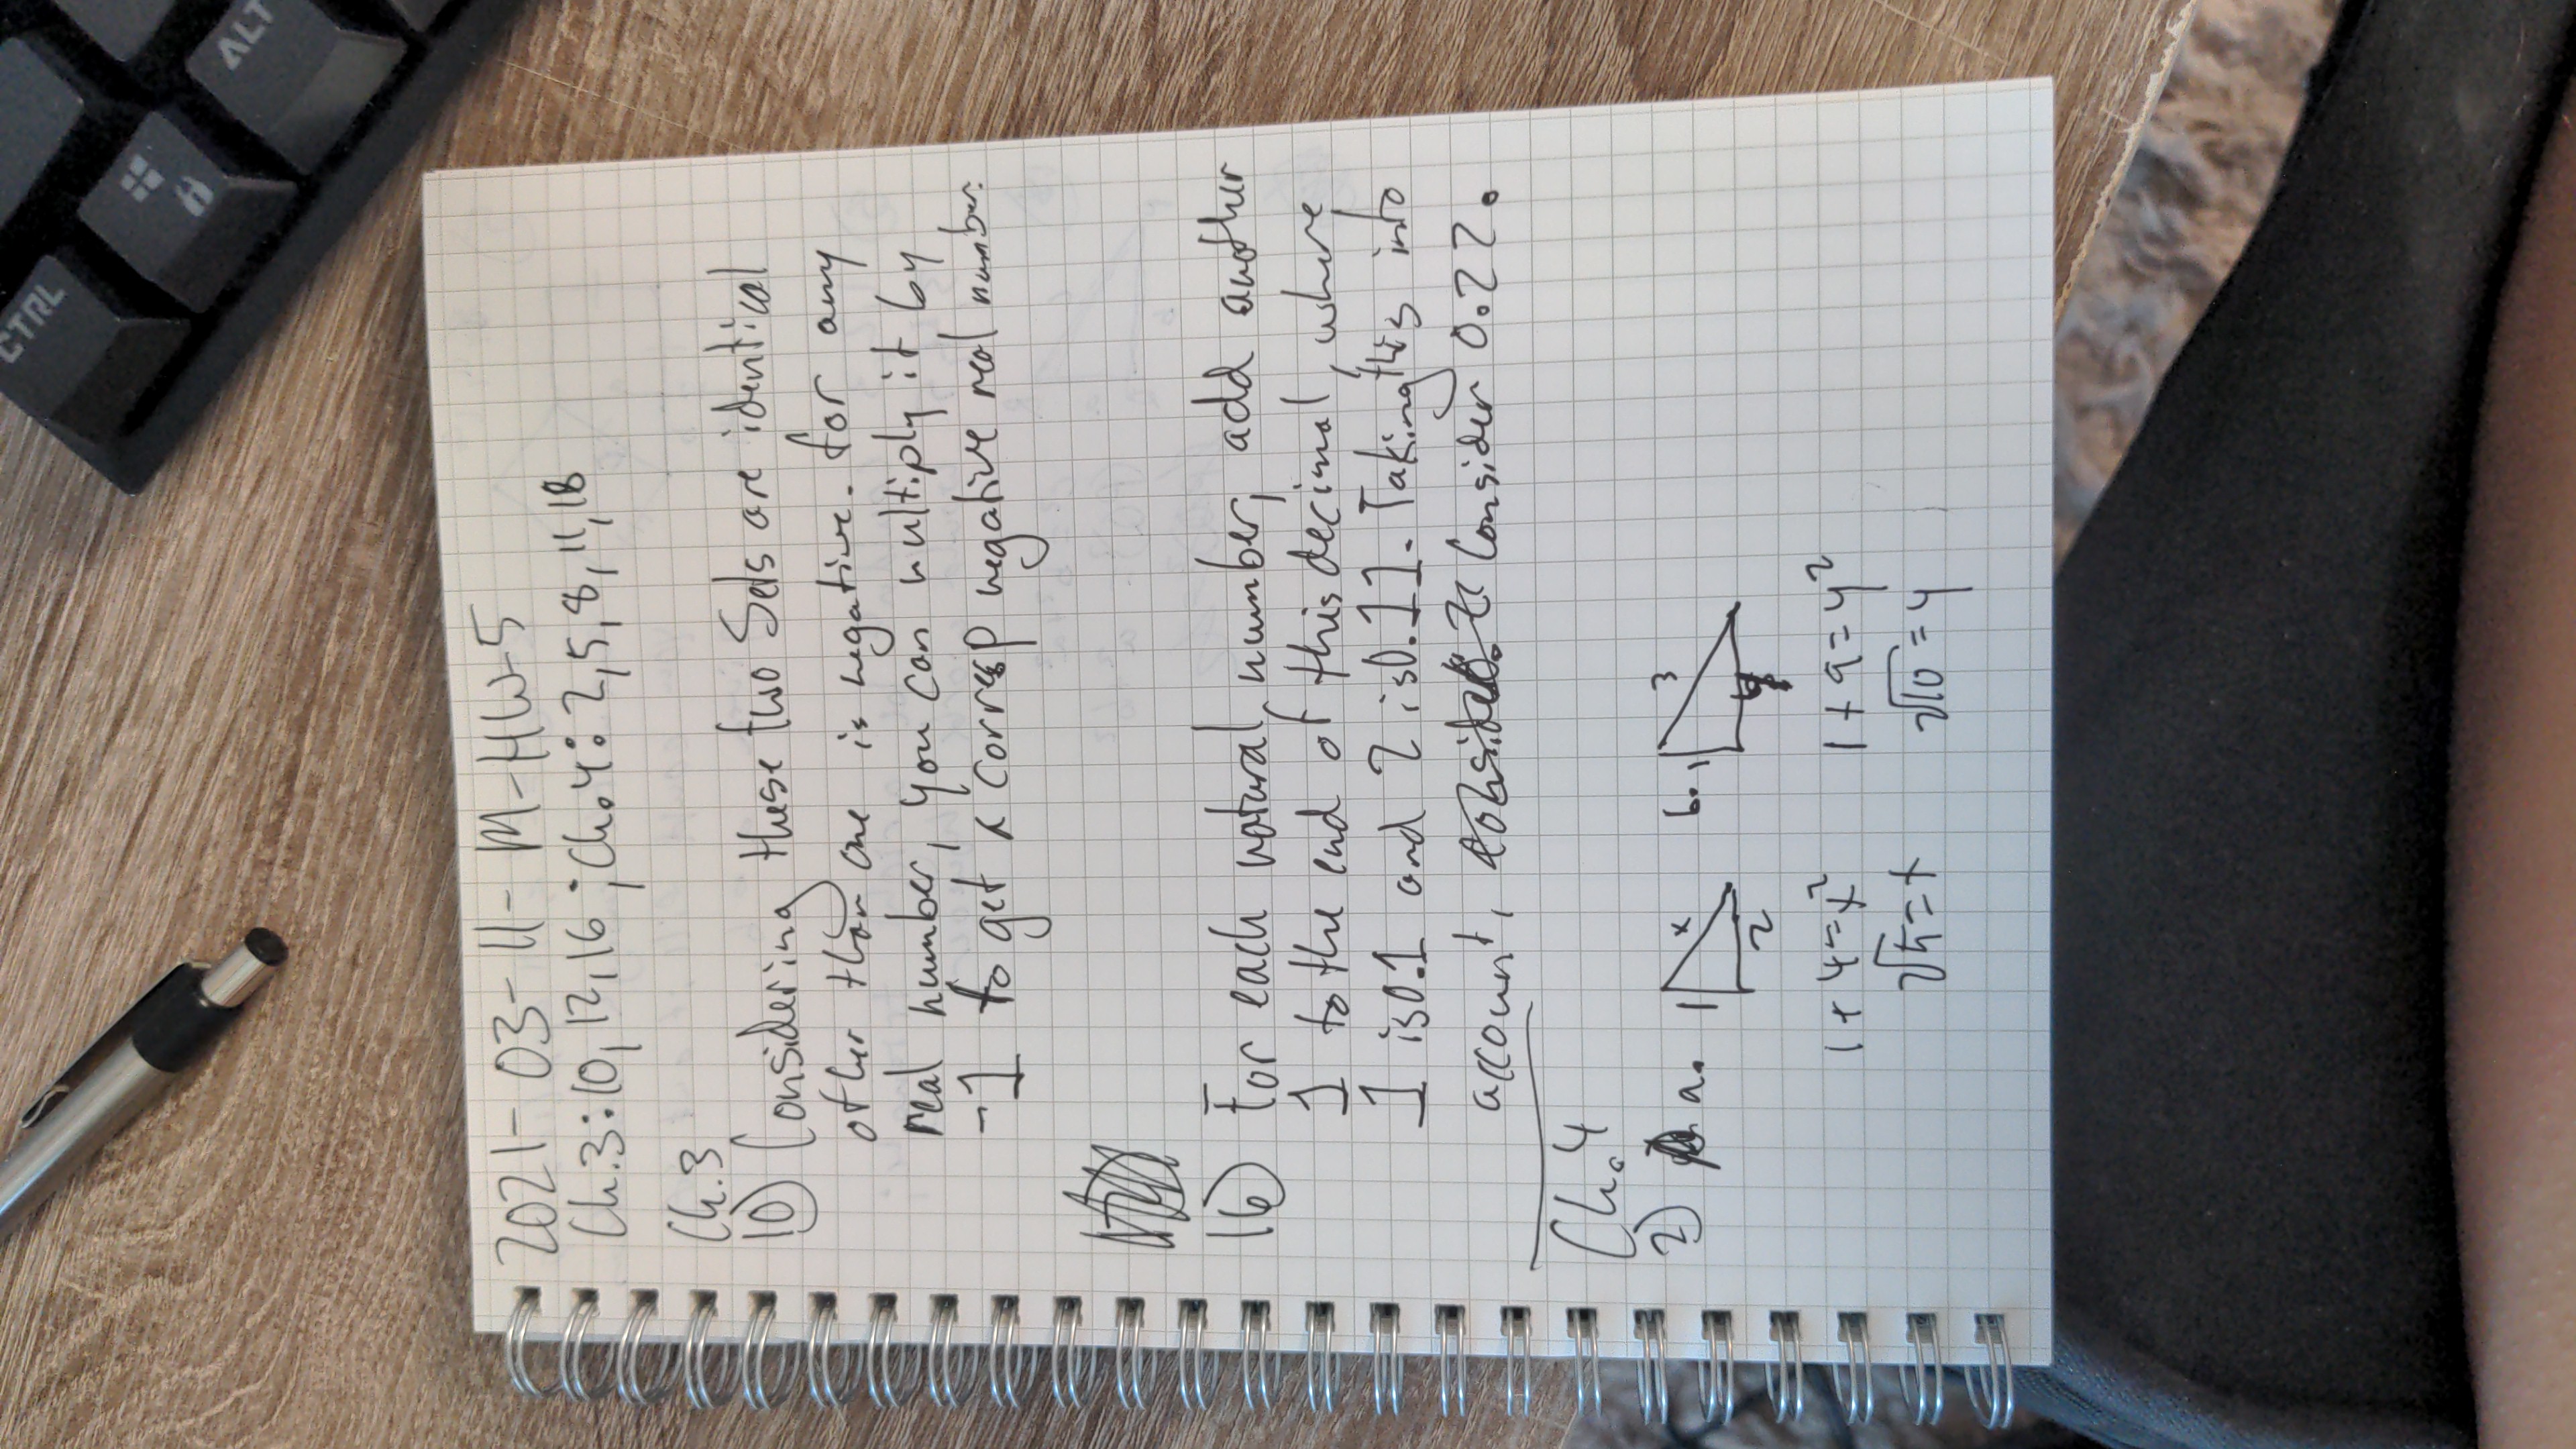 CTRL
ALT
2021-03-11-M-HW-5
Ch.3:10,12,16;Ch.4:2,5,8,11,18
Ch.3
10) Considering these two Sets are identical
other than one is negative. for any
real number, you can multiply it by
-1 to get a corresp negative real number.
16) For each natural number, add another
1 to the end of this decimal, where
1 is 0.1 and 2 is 0.11. Taking this into
account, Consider 0.22.
Ch.4
2) a. 1 x 2 b. 1 3
1+4=x² 1+9=y²
√5=x √10=y